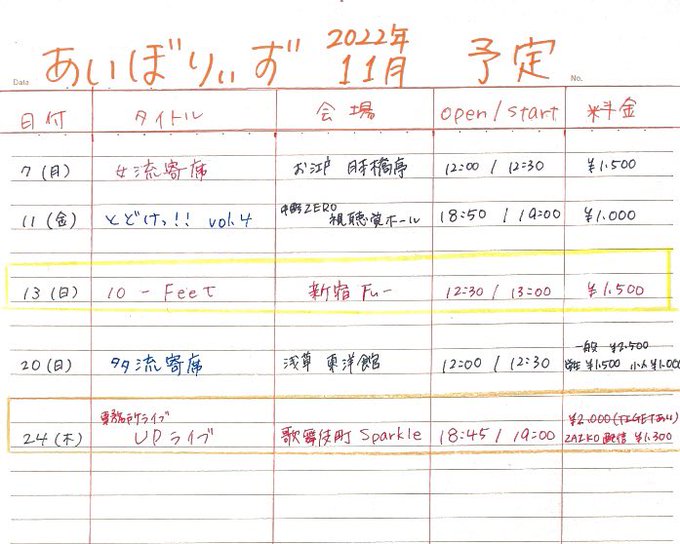 Date
あいぼりぃず 2022年 11月 予定
No.
日付 タイトル 会場 open / start 料金
7 (月) 女流寄席 お江戸 日本橋亭 12:00 / 12:30 ¥1.500
11 (金) とどけっ!! vol.4 中野ZERO 視聴覚ホール 18:50 / 19:00 ¥1.000
13 (日) 10 - Feet 新宿 Fu- 12:30 / 13:00 ¥1.500
一般 ¥2.500
20 (日) 夛流寄席 浅草 東洋館 12:00 / 12:30 ¥1.500 小人 ¥1.000
事務所ライブ ¥2.000 (TIGETあり)
24 (木) UPライブ 歌舞伎町 Sparkle 18:45 / 19:00 ZAIKO 配信 ¥1.300